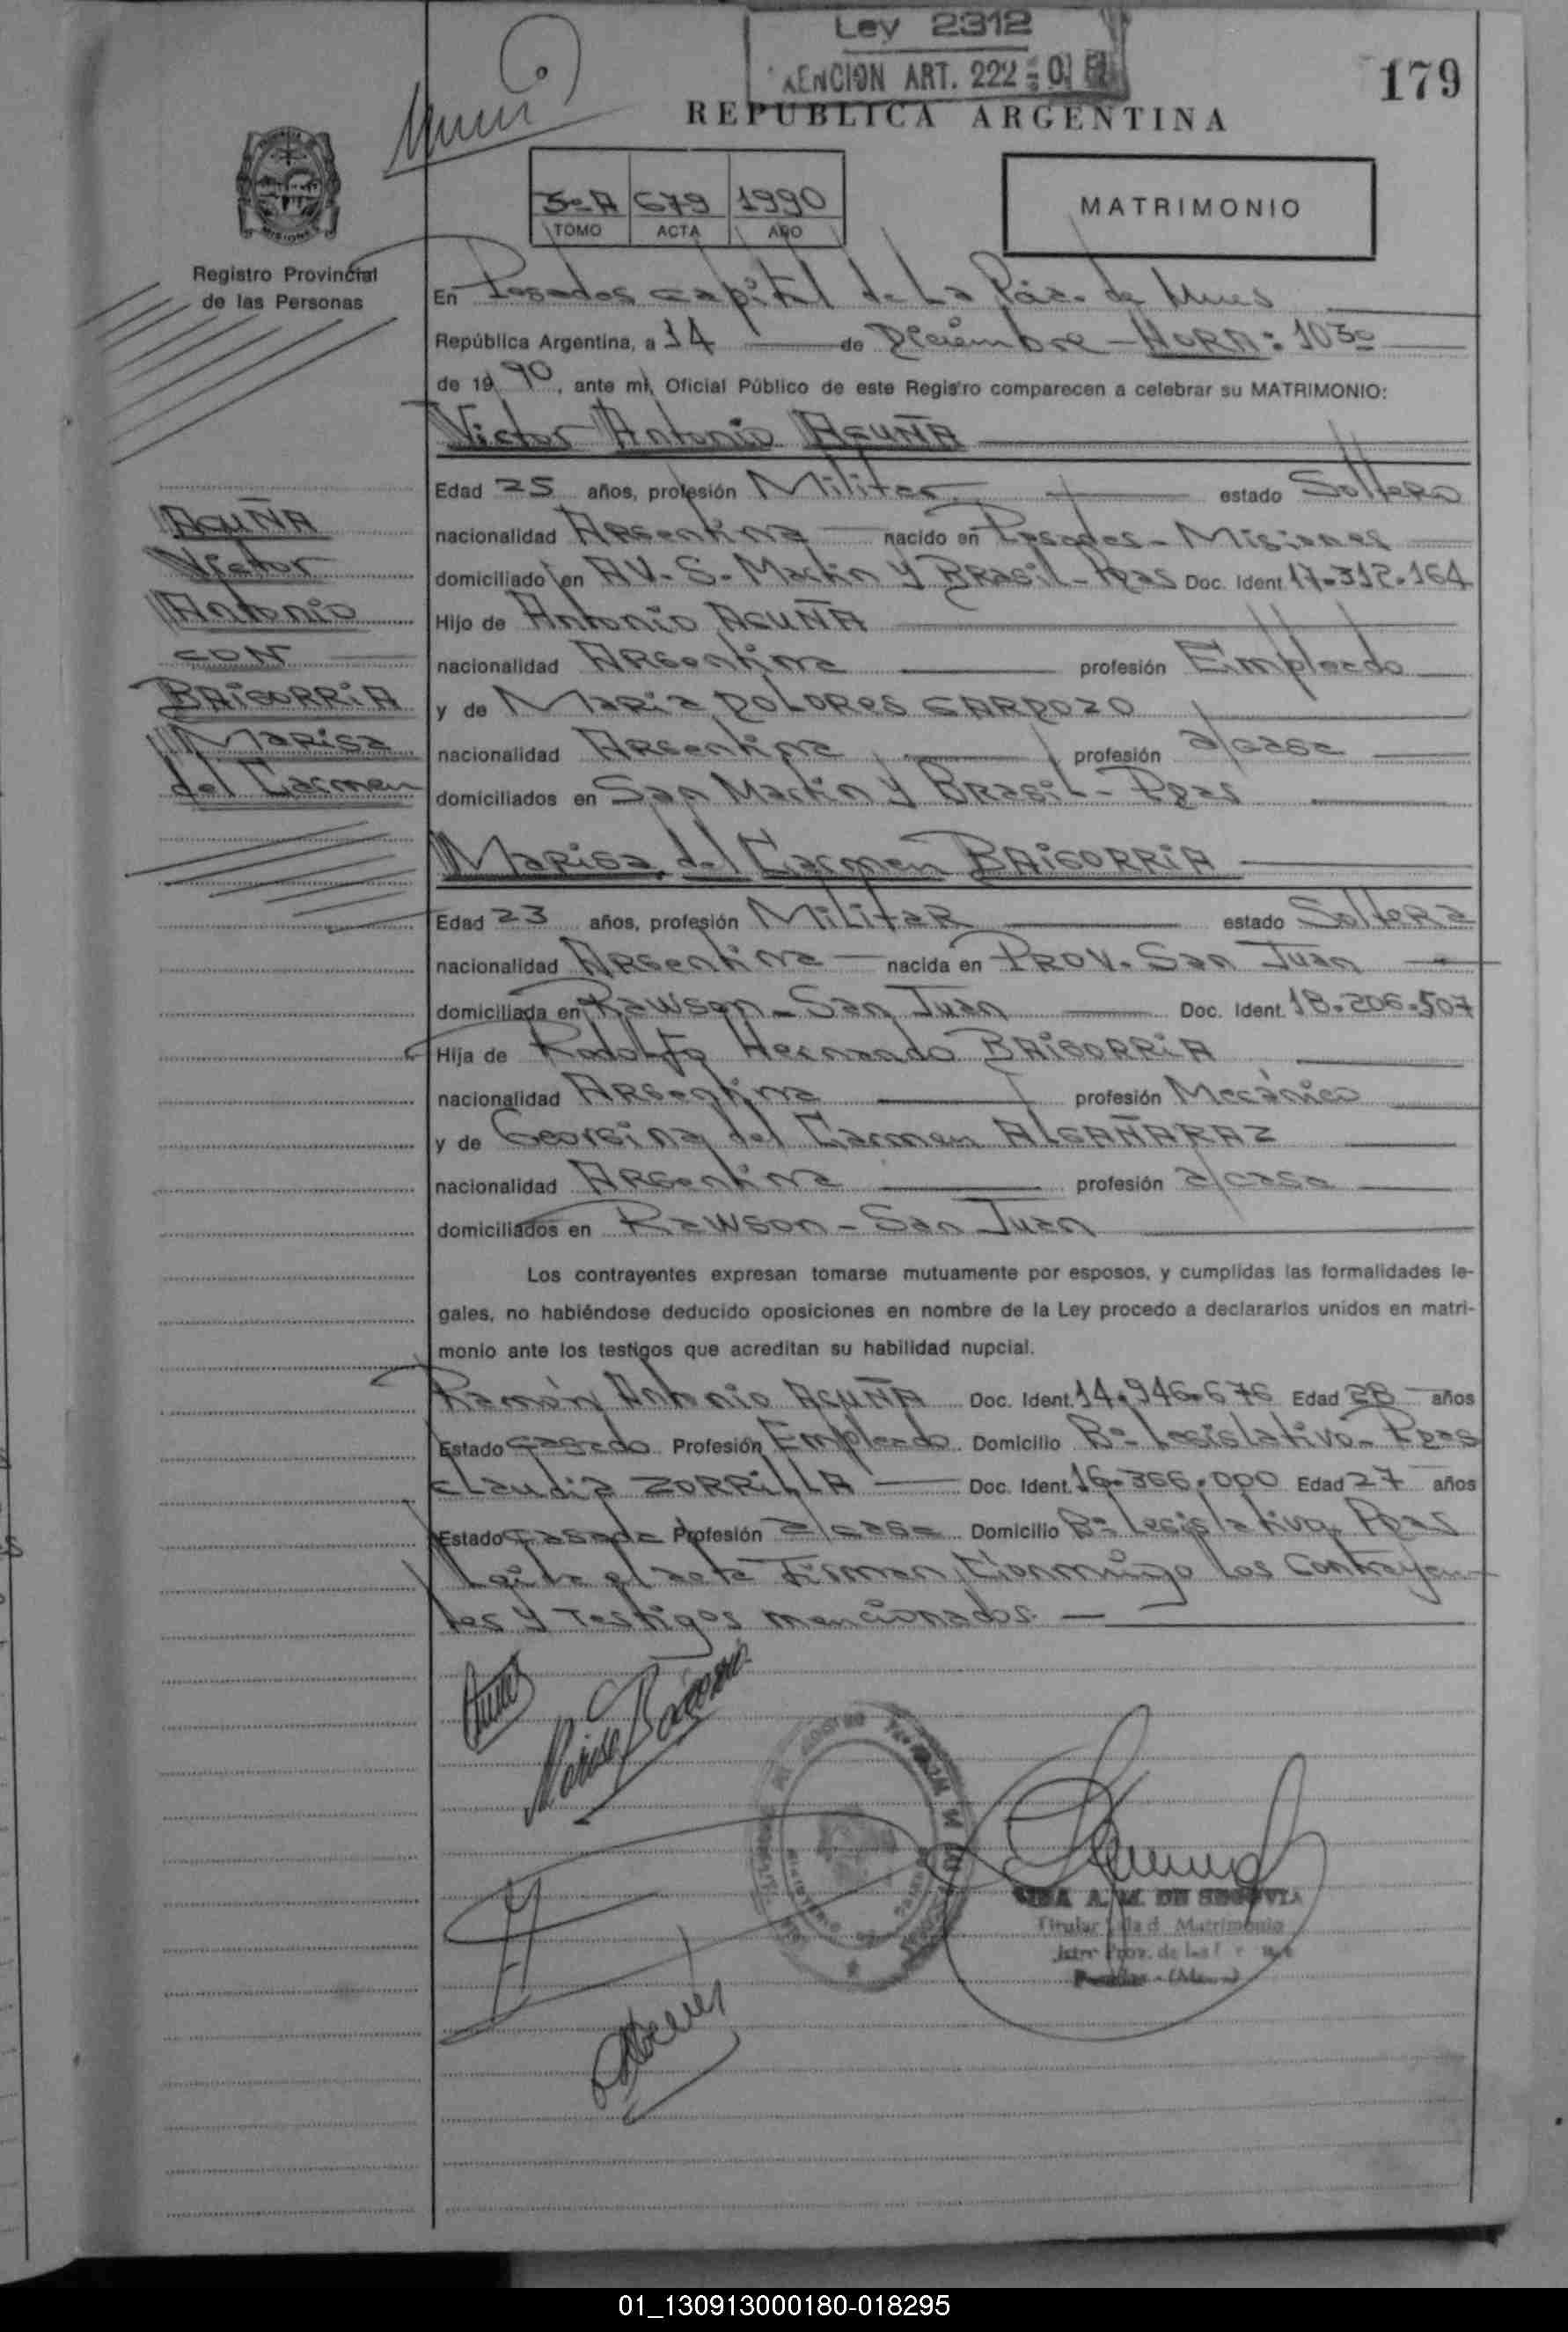 Ley 2312
ENCION ART. 222
179
REPUBLICA ARGENTINA
3º A 679 1990
TOMO ACTA AÑO
MATRIMONIO
MISIONES
Registro Provincial
de las Personas
En Posadas capital de La Pcia. de Mnes
República Argentina, a 14 de Diciembre - HORA: 1030
de 19 90, ante mí, Oficial Público de este Registro comparecen a celebrar su MATRIMONIO:
Victor Antonio ACUÑA
Edad 25 años, profesión Militar estado Soltero
nacionalidad Argentina nacido en Posadas - Misiones
domiciliado en AV. S. Martin y Brasil - Pdas Doc. Ident. 17.312.164
Hijo de Antonio ACUÑA
nacionalidad Argentina profesión Empleado
y de Maria DOLORES CARDOZO
nacionalidad Argentina profesión a/casa
domiciliados en San Martin y Brasil - Pdas
Marisa del Carmen BAIGORRIA
Edad 23 años, profesión Militar estado Soltera
nacionalidad Argentina nacida en PROV. San Juan
domiciliada en Rawson - San Juan Doc. Ident. 18.206.507
Hija de Rodolfo Hernando BAIGORRIA
nacionalidad Argentina profesión Mecánico
y de Georgina del Carmen ALCAÑARAZ
nacionalidad Argentina profesión a/casa
domiciliados en Rawson - San Juan
Los contrayentes expresan tomarse mutuamente por esposos, y cumplidas las formalidades le-
gales, no habiéndose deducido oposiciones en nombre de la Ley procedo a declararlos unidos en matri-
monio ante los testigos que acreditan su habilidad nupcial.
Ramón Antonio ACUÑA Doc. Ident. 14.946.676 Edad 28 años
Estado Casado Profesión Empleado Domicilio Bº Legislativo - Pdas
Claudia ZORRILLA Doc. Ident. 16.366.000 Edad 27 años
Estado Casada Profesión a/casa Domicilio Bº Legislativo Pdas
Leida el acta Firman Conmigo los Contrayen-
tes y Testigos mencionados.
ACUÑA
Victor
Antonio
CON
BAIGORRIA
Marisa
del Carmen
A. M. DE SEGOVIA
Titular Matrimonio
Prov. de las
01_130913000180-018295